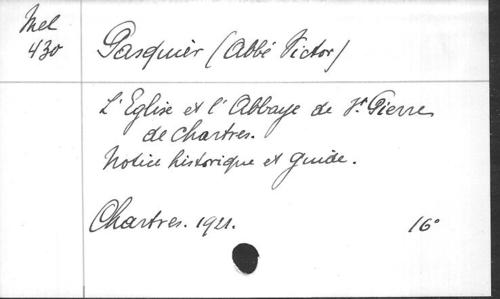 Mel
430
Pasquier (Abbé Victor)
L'Eglise et l'Abbaye de St. Pierre
de Chartres.
Notice historique et guide.
Chartres. 1921. 16°